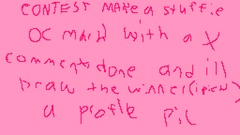 CONTEST MAKE a stuffie
OC mark with a X
comment done and ill
Draw the winner(ipick)
a profile pic